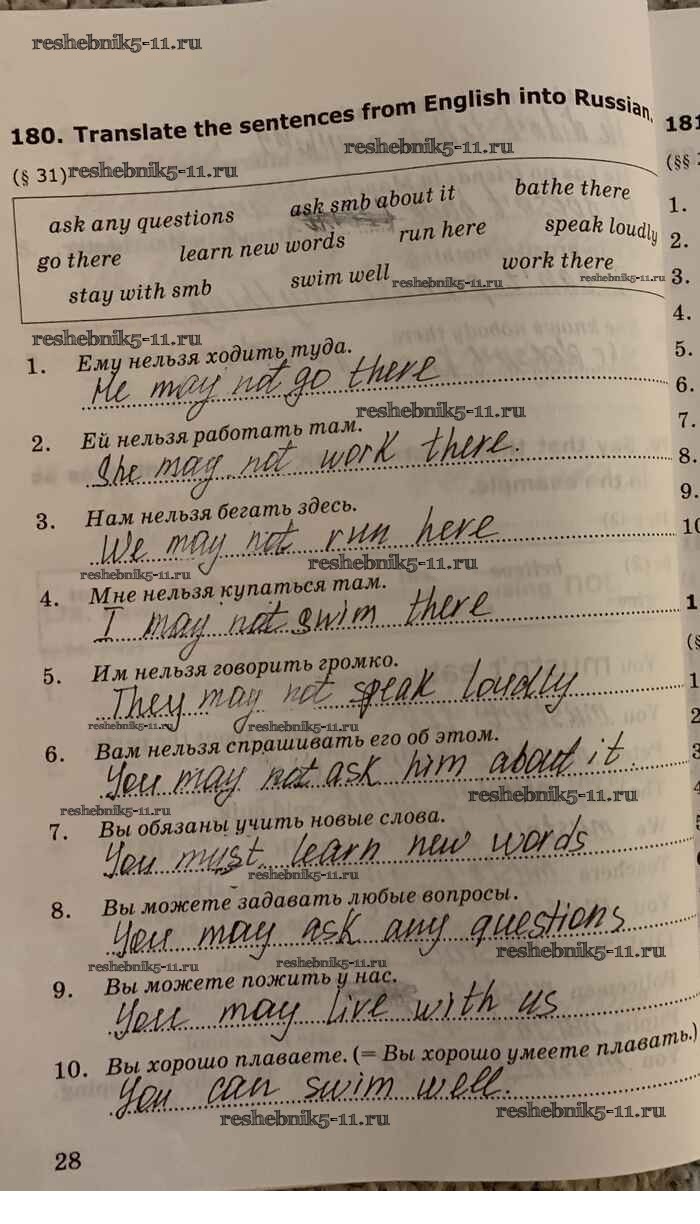 reshebnik5-11.ru
180. Translate the sentences from English into Russian.
reshebnik5-11.ru
(§ 31) reshebnik5-11.ru
ask any questions ask smb about it bathe there
go there learn new words run here speak loudly
stay with smb swim well work there
reshebnik5-11.ru reshebnik5-11.ru
reshebnik5-11.ru
1. Ему нельзя ходить туда.
He may not go there
reshebnik5-11.ru
2. Ей нельзя работать там.
She may not work there.
3. Нам нельзя бегать здесь.
We may not run here
reshebnik5-11.ru reshebnik5-11.ru
4. Мне нельзя купаться там.
I may not swim there
5. Им нельзя говорить громко.
They may not speak loudly
reshebnik5-11.ru reshebnik5-11.ru
6. Вам нельзя спрашивать его об этом.
You may not ask him about it.
reshebnik5-11.ru reshebnik5-11.ru
7. Вы обязаны учить новые слова.
You must learn new words
reshebnik5-11.ru
8. Вы можете задавать любые вопросы.
You may ask any questions
reshebnik5-11.ru reshebnik5-11.ru reshebnik5-11.ru
9. Вы можете пожить у нас.
You may live with us
10. Вы хорошо плаваете. (= Вы хорошо умеете плавать.)
You can swim well.
reshebnik5-11.ru reshebnik5-11.ru
28
181
(§§
1.
2.
3.
4.
5.
6.
7.
8.
9.
10